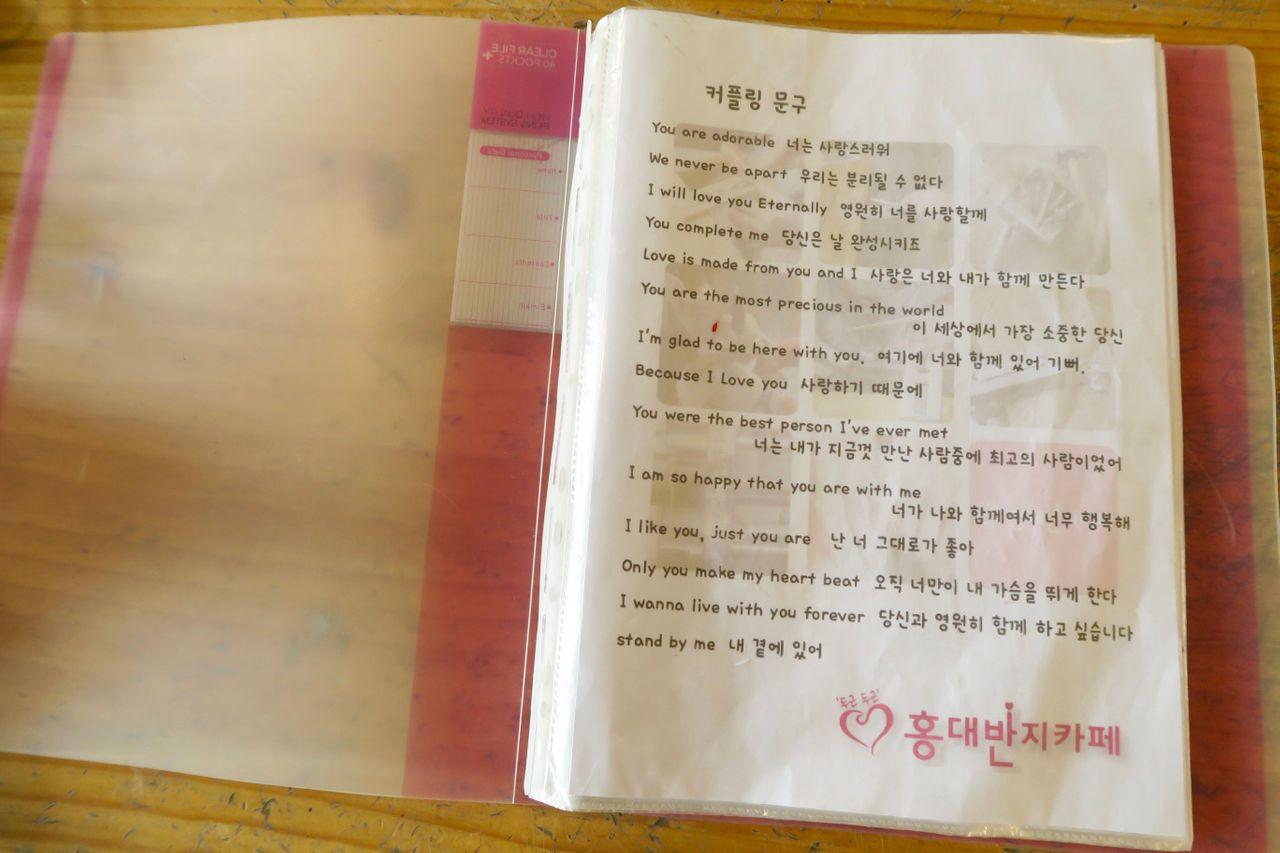 CLEAR FILE
40 POCKTS
+
HIGH QUALITY
FILING SYSTEM
Personal Data
Name
Title
Contents
E-mail
커플링 문구
You are adorable 너는 사랑스러워
We never be apart 우리는 분리될 수 없다
I will love you Eternally 영원히 너를 사랑할께
You complete me 당신은 날 완성시키죠
Love is made from you and I 사랑은 너와 내가 함께 만든다
You are the most precious in the world
이 세상에서 가장 소중한 당신
I'm glad to be here with you. 여기에 너와 함께 있어 기뻐.
Because I Love you 사랑하기 때문에
You were the best person I've ever met
너는 내가 지금껏 만난 사람중에 최고의 사람이었어
I am so happy that you are with me
너가 나와 함께여서 너무 행복해
I like you, just you are 난 너 그대로가 좋아
Only you make my heart beat 오직 너만이 내 가슴을 뛰게 한다
I wanna live with you forever 당신과 영원히 함께 하고 싶습니다
stand by me 내 곁에 있어
'두근 두근'
홍대반지카페